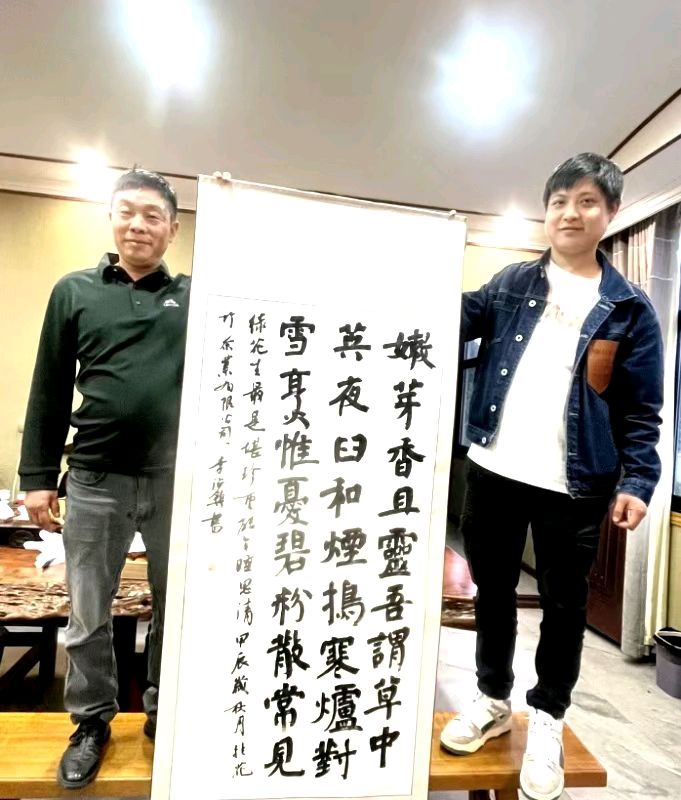 嫩芽香且靈吾謂草中
英夜臼和煙搗寒爐對
雪烹惟憂碧粉散常見
綠花生最是堪珍重能令睡思清甲辰歲秋月於花
竹茶業有限公司 李 書